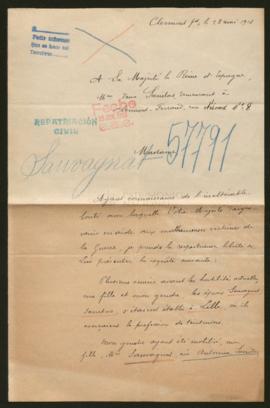 Clermont Fd, le 28 mai 1918
A Sa Majesté la Reine d'Espagne,
Mme Sanctus demeurant à
Clermont-Ferrand, rue No 8
Fecha
REPATRIACIÓN
CIVIL
57791
Sauvagnat
Madame,
Ayant connaissance de l'inaltérable
bonté avec laquelle Votre Majesté daigne
venir en aide aux malheureuses victimes de
la Guerre, je prends la respectueuse liberté de
Lui présenter la requête suivante:
Plusieurs années avant les hostilités actuelles,
ma fille et mon gendre, les époux Sauvagnat
Sanctus, s'étaient établis à Lille, où ils
exerçaient la profession de teinturiers.
Mon gendre ayant été mobilisé, ma
fille, Mme Sauvagnat, née Antonia